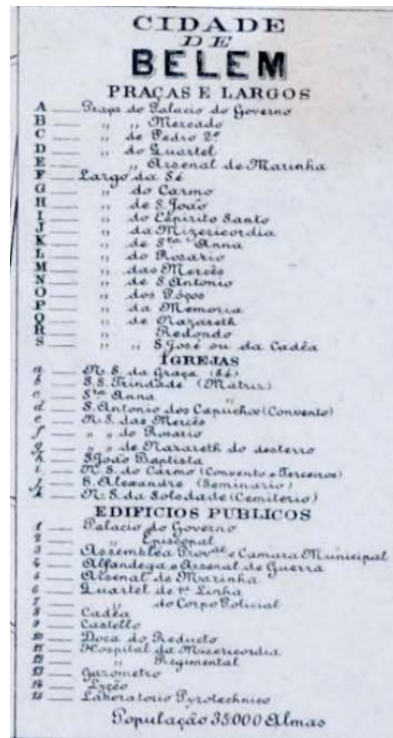 CIDADE
DE
BELEM
PRAÇAS E LARGOS
A Praça do Palacio do Governo
B „ „ Mercado
C „ de Pedro 2º
D „ do Quartel
E „ „ Arsenal de Marinha
F Largo da Sé
G „ do Carmo
H „ de S. João
I „ do Espirito Santo
J „ da Mizericordia
K „ de Sta Anna
L „ do Rosario
M „ das Mercês
N „ de S. Antonio
O „ dos Póços
P „ da Memoria
Q „ de Nazareth
R „ Redondo
S „ „ S. José ou da Cadêa
IGREJAS
a N. S. da Graça (Sé)
b S.S. Trindade (Matriz)
c Sta Anna „
d S. Antonio dos Capuchos (Convento)
e N. S. das Mercês
f „ „ do Rosario
g „ „ de Nazareth do desterro
h S. João Baptista
i N. S. do Carmo (Convento e Terceiros)
j S. Alexandre (Seminario)
k N. S. da Soledade (Cemiterio)
EDIFICIOS PUBLICOS
1 Palacio do Governo
2 „ Episcopal
3 Assemblea Proval e Camara Municipal
4 Alfandega e Arsenal de Guerra
5 Arsenal de Marinha
6 Quartel de 1ª Linha
7 „ do Corpo Policial
8 Cadêa
9 Castello
10 Doca do Reducto
11 Hospital da Misericordia
12 „ Regimental
13 Gazometro
14 Lyceo
15 Laboratorio Pyrotechnico
População 35000 Almas